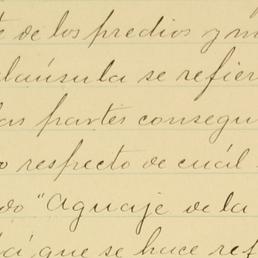 e de los predios y m
cláusula se refier
las partes consegu
o respecto de cuál
do "Aguaje de la
que se hace ref